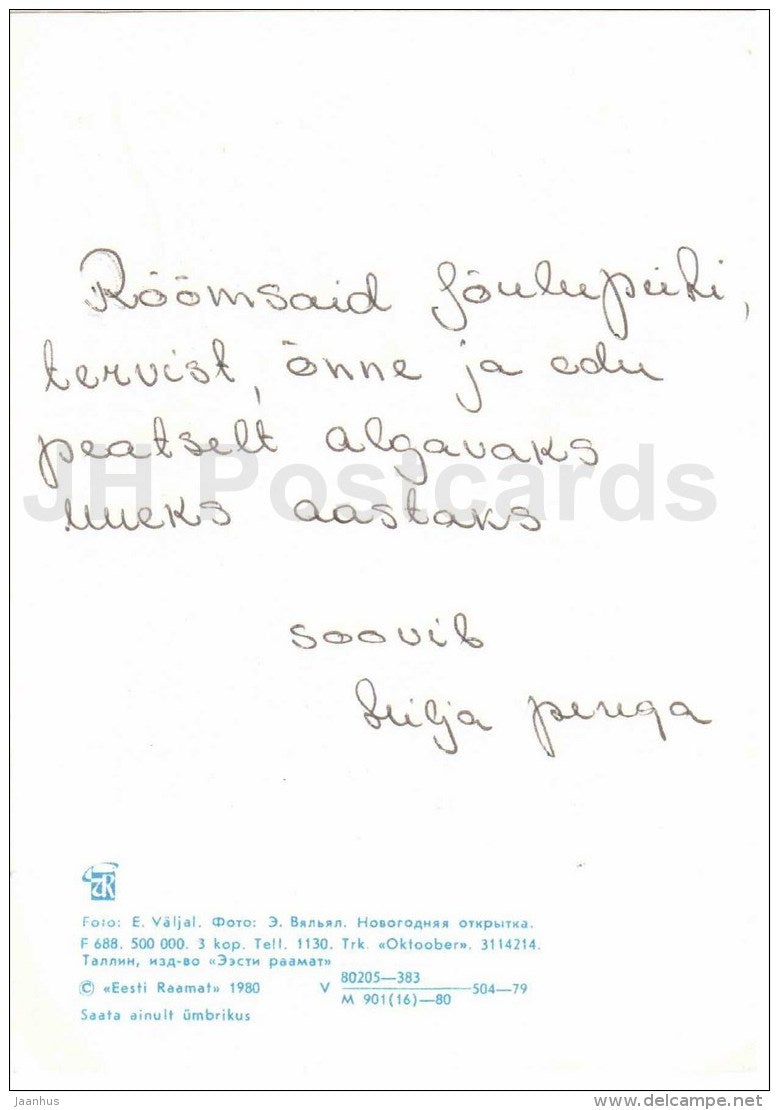 Rõõmsaid jõulupühi,
tervist, õnne ja edu
peatselt algavaks
uueks aastaks
JH Postcards
soovib
perega
Foto: E. Väljal. Фото: Э. Вяльял. Новогодняя открытка.
F 688. 500 000. 3 kop. Tell. 1130. Trk. «Oktoober». 3114214.
Таллин, изд-во «Ээсти раамат»
© «Eesti Raamat» 1980 V 80205—383 504—79
M 901(16)—80
Saata ainult ümbrikus
Jaanhus
www.delcampe.net